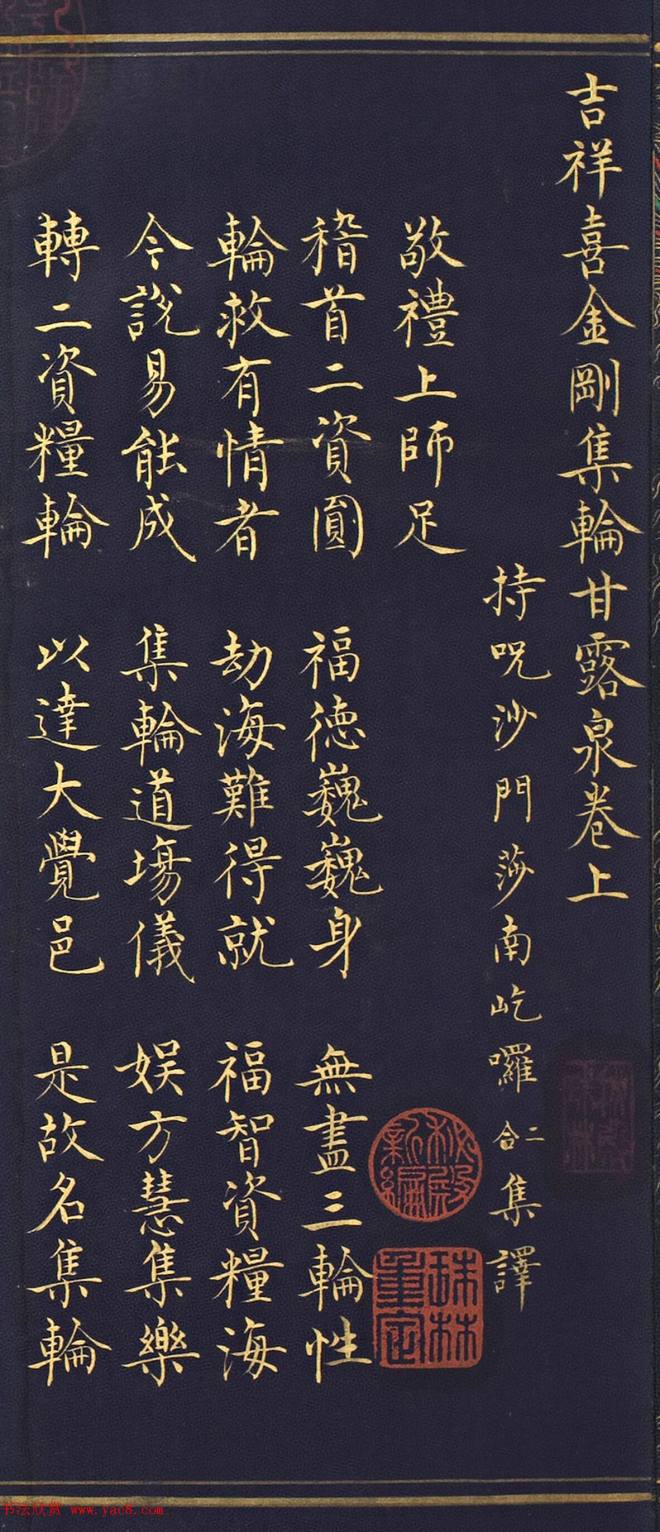 吉祥喜金剛集輪甘露泉卷上
持呪沙門莎南屹囉二合集譯
敬禮上師足
稽首二資圓 福德巍巍身 無盡三輪性
輪救有情者 劫海難得就 福智資糧海
今說易能成 集輪道場儀 娛方慧集樂
轉二資糧輪 以達大覺邑 是故名集輪
秘殿新編
珠林重定
书法欣赏 www.yac8.com